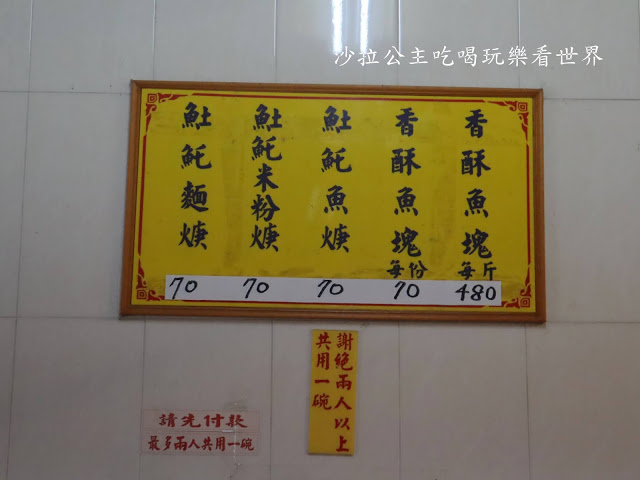 沙拉公主吃喝玩樂看世界
香酥魚塊每斤
480
香酥魚塊每份
70
魠魚焿
70
米粉焿
70
麵焿
70
謝絕兩人以上
共用一碗
請先付款
最多兩人共用一碗